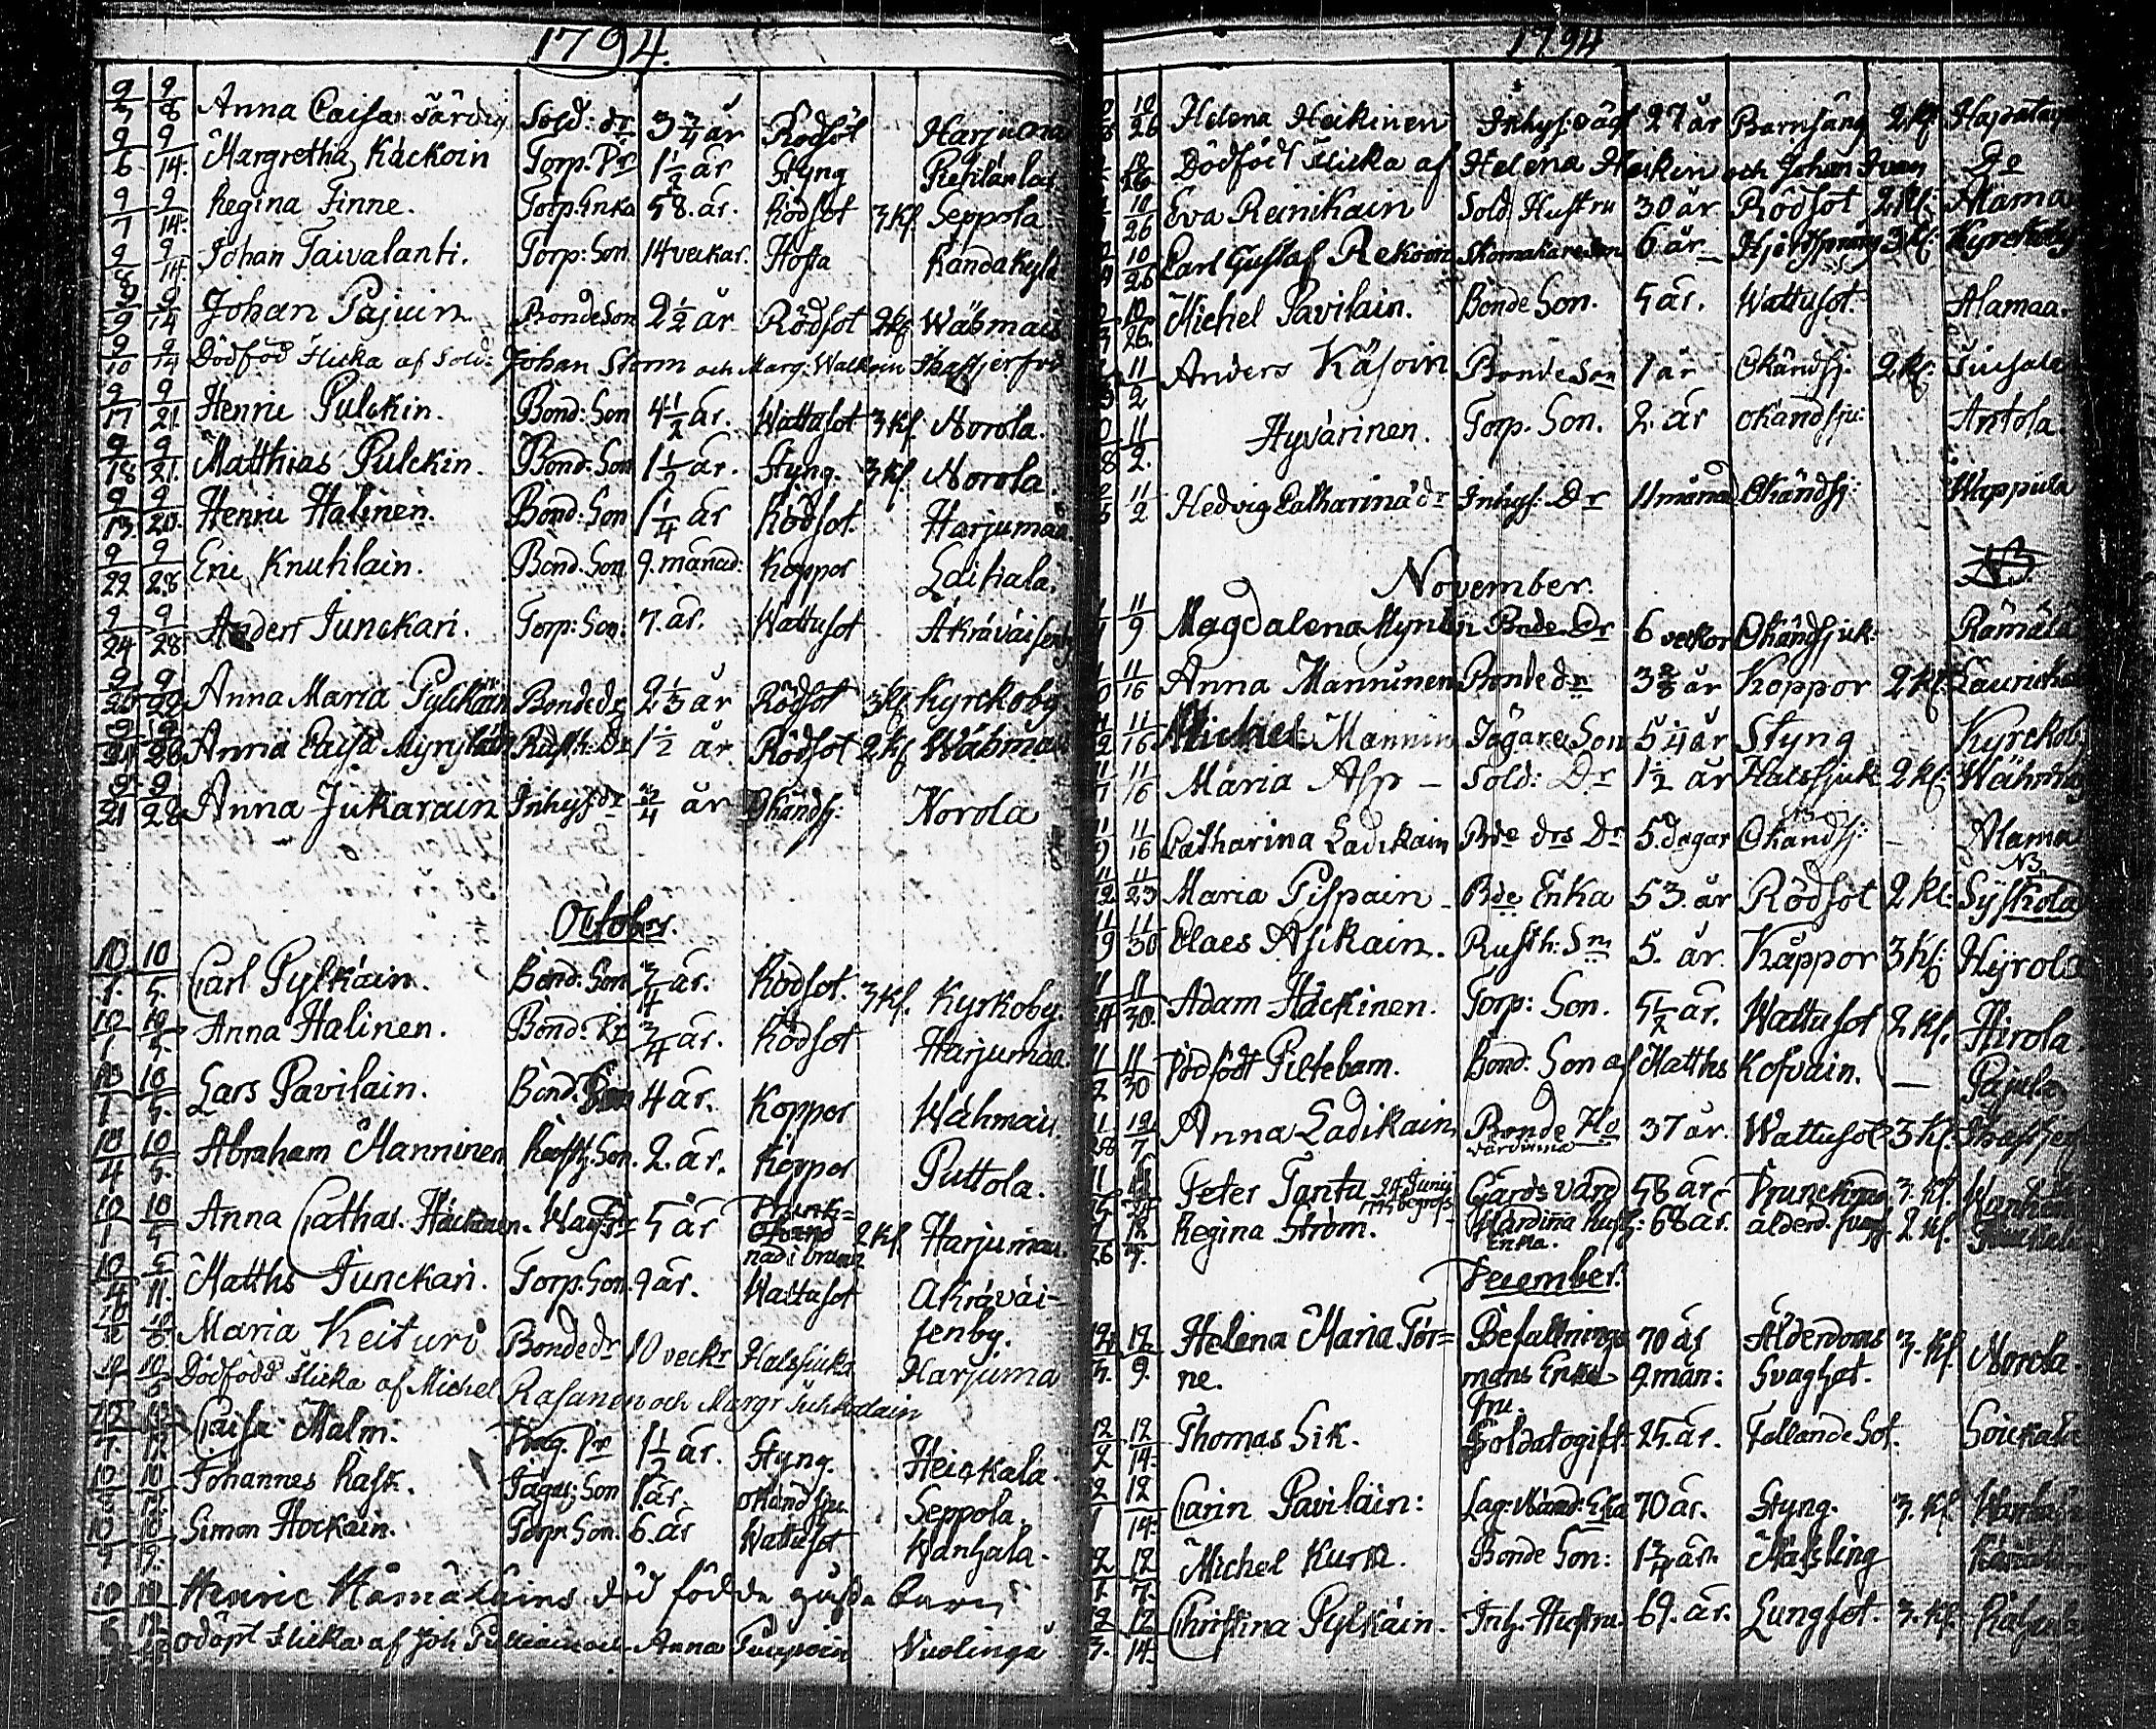 1794.
9/7 9/8 Anna Caisa Färdig Sold: dr 3 3/4 år Rödsot Harjuma
9/6 9/14. Margretha Käckoin Torp. Dr 1 1/2 år Styng
9/7 9/14. Regina Finne. Torp. Enka 58. år. Rödsot 3 Kl. Seppola
9/8 9/14. Johan Taivalanti. Torp: Son 14 veckar. Hosta Randakylä
9/9 9/14 Johan Pajuin Bonde Son 2 1/2 år Rödsot 2 Kl Wähmais
9/10 9/14 Dödföd Flicka af Sold: Johan Storm och Marg: Walkoin
9/17 9/21. Henric Pulckin. Bond: Son 4 1/2 år. Wattusot 3 Kl. Norola.
9/18 9/21. Matthias Pulckin. Bond: Son 1 1/2 år. Styng. 3 Kl. Norola
9/13. 9/20. Henric Halinen. Bond: Son 1 1/4 år Rödsot. Harjumaa.
9/22 9/28 Eric Knuhlain. Bond. Son 9. månad: Koppor Laihala.
9/24 9/28 Anders Junckari. Torp: Son: 7. år. Wattusot Akräväisenby
Anna Maria Pylckäin Bonde dr 2 1/3 år Rödsot 3 Kl Kyrckoby
Anna Caisa Rusth: Dr 1 1/2 år Rödsot 2 Kl Wähmais
9/21 9/28 Anna Jukarain Inhys dr 3/4 år Okändsj: Norola
October.
10/1. 10/5. Carl Pylkäin. Bond. Son 3/4 år. Rödsot. 3 Kl. Kyrkoby.
10/1 10/5. Anna Halinen. Bond: Dr 3/4 år. Rödsot Harjumaa
10/1 10/5. Lars Pavilain. Bond. Son 4 år. Koppor Wähmais.
10/4 10/5. Abraham Manninen Rusth. Son. 2. år. Koppor Puttola.
10/1 10/5 Anna Cathar. Häckinen. Dr 5 år Drunk=
nad i brunn 2 Kl. Harjumaa.
Matths Junckari. Torp. Son. 9 år. Wattusot Akräväi-
senby.
Maria Keituri Bonde dr 10 veckr Halssjuka Harjuma
Dödfödd Flicka af Michel Rasanen och Margr
Caisa Malm. Drag. Dr 1 1/2 år. Styng. Heickala.
Johannes Rask. Jägar: Son 1. år. okänd sju. Seppola.
Simon Hockain. Torp. Son. 6. år Wattusot Wanhala.
Henric Hämäläins död födde gosse barn
odöpt Flicka af Joh Anna Vuolinga
1794
10/26 Helena Heikinen Inhys: 27 år Barnsäng 2 Kl
10/26. Dödfödt Flicka af Helena Heikin och Johan Do
10/26 Eva Reinikain Sold. Hustru 30 år Rödsot 2 Kl: Alama
10/26 Carl Gustaf Rekoin Skomakare Son 6 år 3 Kl: Kyrckoby
10/26. Michel Pavilain. Bonde Son. 5 år. Wattusot. Alamaa.
11/2 Anders Käsoin Bonde Son 1 år Okändsj: 2 Kl:
11/2. Hyvärinen. Torp. Son. 2. år okändsju: Antola.
11/2 Hedvig Catharina dr Inhys: Dr 11 månad Okändsj: Wuppula
NB
November.
11/9 Magdalena Bonde Dr 6 veckor Okändsjuk: Rämälä
11/16 Anna Manninen Bonde dr 3 2/3 år Koppor 2 Kl:
11/16 Michel Mannin Jägare Son 5 1/4 år Styng Kyrckoby
11/16 Maria Asp - Sold: Dr 1 1/2 år Halssjuk 2 Kl: Wähmais
11/16 Catharina Ladikain Bde drs Dr 5. dagar Okändsj: - Alama
NB
11/23 Maria Pispain - Bde Enka 53. år Rödsot 2 Kl: Syskola
11/30 Claes Asikain. Rusth: Sn 5. år. Kåppor 3 Kl: Hyrola
11/30. Adam Häckinen. Torp: Son. 5 1/2 år. Wattusot 2 Kl. Hirola.
11/30 Dödfödt Piltebarn. Bond. Son af Matths Kofvain. - Pajula
12/7 Anna Ladikain Bonde Ho 37 år. Wattusot 3 Kl.
värdinna
Peter Tantu 24 Junii Gårdsvärd 58 år. Druncknad 3. Kl. Wanhala
Regina Ström. Värdinna 68 år. ålderd. svagh. 2 Kl.
Enka.
December.
12/9. Helena Maria Tör= Befallnings 70 år Ålderdoms 3. Kl. Norola.
ne. mans Enka 9. mån: Svaghet.
fru.
12/2 12/14. Thomas Sik. Soldatogift. 25. år. Fallande Sot. Soickala
12/1 12/14. Carin Pavilain: Lag: Mänd: Eka 70 år. Styng. 3. Kl. Wanhala
12/1 12/7. Michel Kurn. Bonde Son: 1 3/4 år. Mässling
12/3. 12/14. Christina Pylkäin. Inh. Hustru. 69. år. Lungsot. 3. Kl.